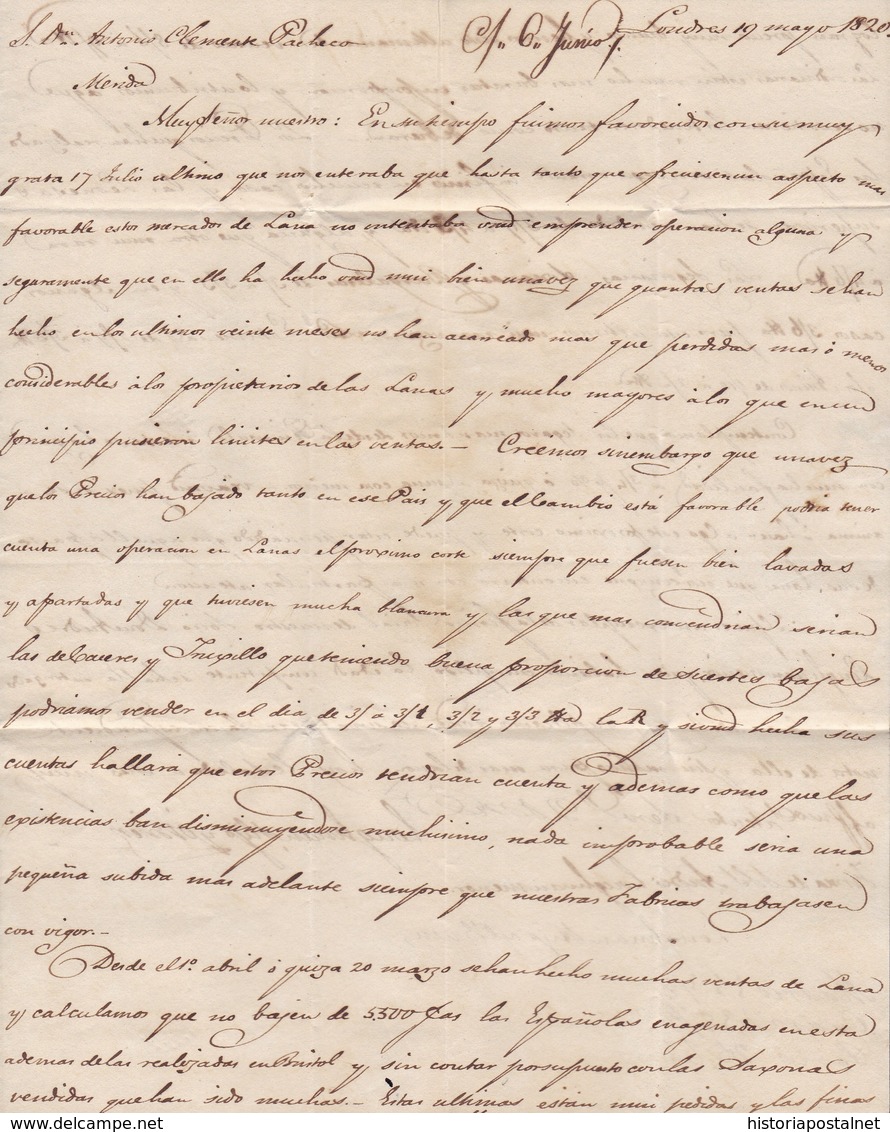 S. Dn. Antonio Clemente Pacheco
C/. 6,, Junio/.
Londres 19 mayo 1820.
Merida
Muy Señor nuestro: En su tiempo fuimos favorecidos con su muy
grata 17 Julio ultimo que nos enteraba que hasta tanto que ofreciesen un aspecto mas
favorable estos mercados de Lana no intentaba vmd emprender operacion alguna y
seguramente que en ello ha hecho vmd mui bien una vez que quantas ventas se han
hecho en los ultimos veinte meses no han acarreado mas que perdidas mas o menos
considerables a los propietarios de las Lanas y mucho mayores a los que en un
principio pusieron limites en las ventas.- Creemos sinembargo que una vez
que los Precios han bajado tanto en ese Pais y que el Cambio está favorable podria tener
cuenta una operacion en Lanas el proximo corte siempre que fuesen bien lavadas
y apartadas y que tuviesen mucha blancura y las que mas convendrian serian
las de Caceres y Truxillo que teniendo buena proporcion de suertes bajas
podriamos vender en el dia de 3/ á 3/1, 3/2 y 3/3 la y si vmd hecha sus
cuentas hallará que estos Precios tendrian cuenta y ademas como que las
existencias ban disminuyendose muchisimo, nada improbable seria una
pequeña subida mas adelante siempre que nuestras Fabricas trabajasen
con vigor.-
Desde el 1º. abril ó quiza 20 marzo se han hecho muchas ventas de Lana
y calculamos que no bajen de 5500 las Españolas enagenadas en esta
ademas de las realizadas en Bristol y sin contar por supuesto con las Saxonas
vendidas que han sido muchas.- Estas ultimas están mui pedidas y las finas
historiapostalnet